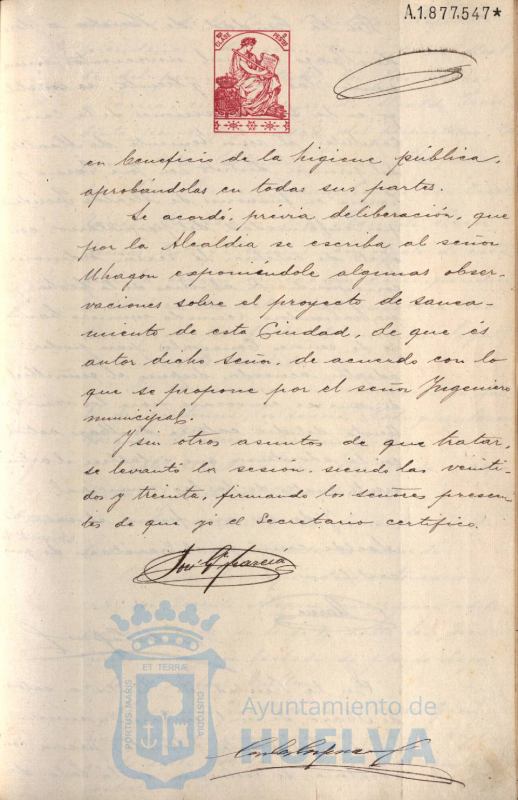 A.1.877.547*
en beneficio de la higiene pública,
aprobándolas en todas sus partes.
Se acordó, prévia deliberación, que
por la Alcaldía se escriba al señor
Uhagon exponiéndole algunas obser-
vaciones sobre el proyecto de sanea-
miento de esta Ciudad, de que és
autor dicho Señor, de acuerdo con lo
que se propone por el señor Ingeniero
municipal.
Y sin otros asuntos de que tratar,
se levantó la sesión, siendo las veinti-
dos y treinta, firmando los señores presen-
tes de que yo el Secretario certifico.
José Gª García
ET TERRÆ
PORTUS MARIS
CUSTODIA
Ayuntamiento de
HUELVA